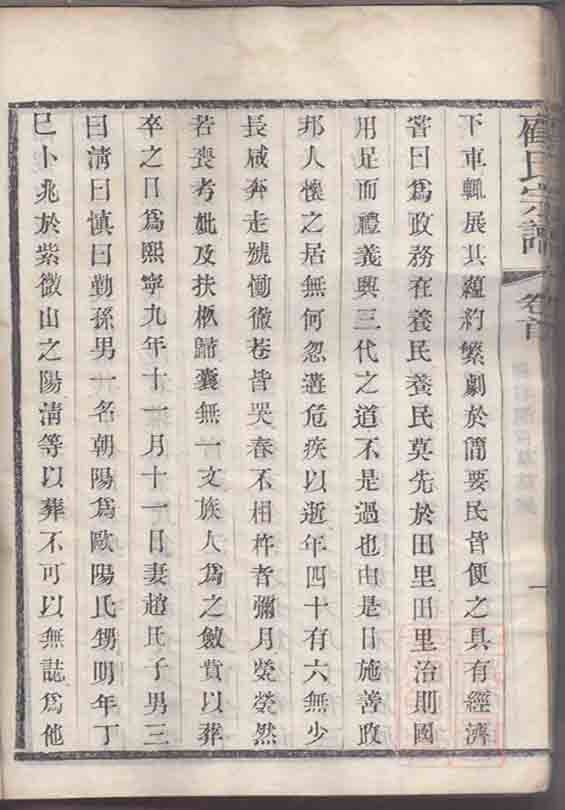 顧氏宗譜
卷首
一
下車輒展其蘊約繁劇於簡要民皆便之具有經濟
嘗曰為政務在養民養民莫先於田里田里治則國
用足而禮義興三代之道不是過也由是日施善政
邦人懷之居無何忽遘危疾以逝年四十有六無少
長咸奔走號慟徹巷皆哭春不相杵者彌月煢煢然
若喪考妣及扶柩歸囊無一文族人為之斂貲以葬
卒之日為熙寧九年十一月十一日妻趙氏子男三
曰淸曰愼曰勤孫男一名朝陽為歐陽氏甥明年丁
巳卜兆於紫微山之陽淸等以葬不可以無誌為他